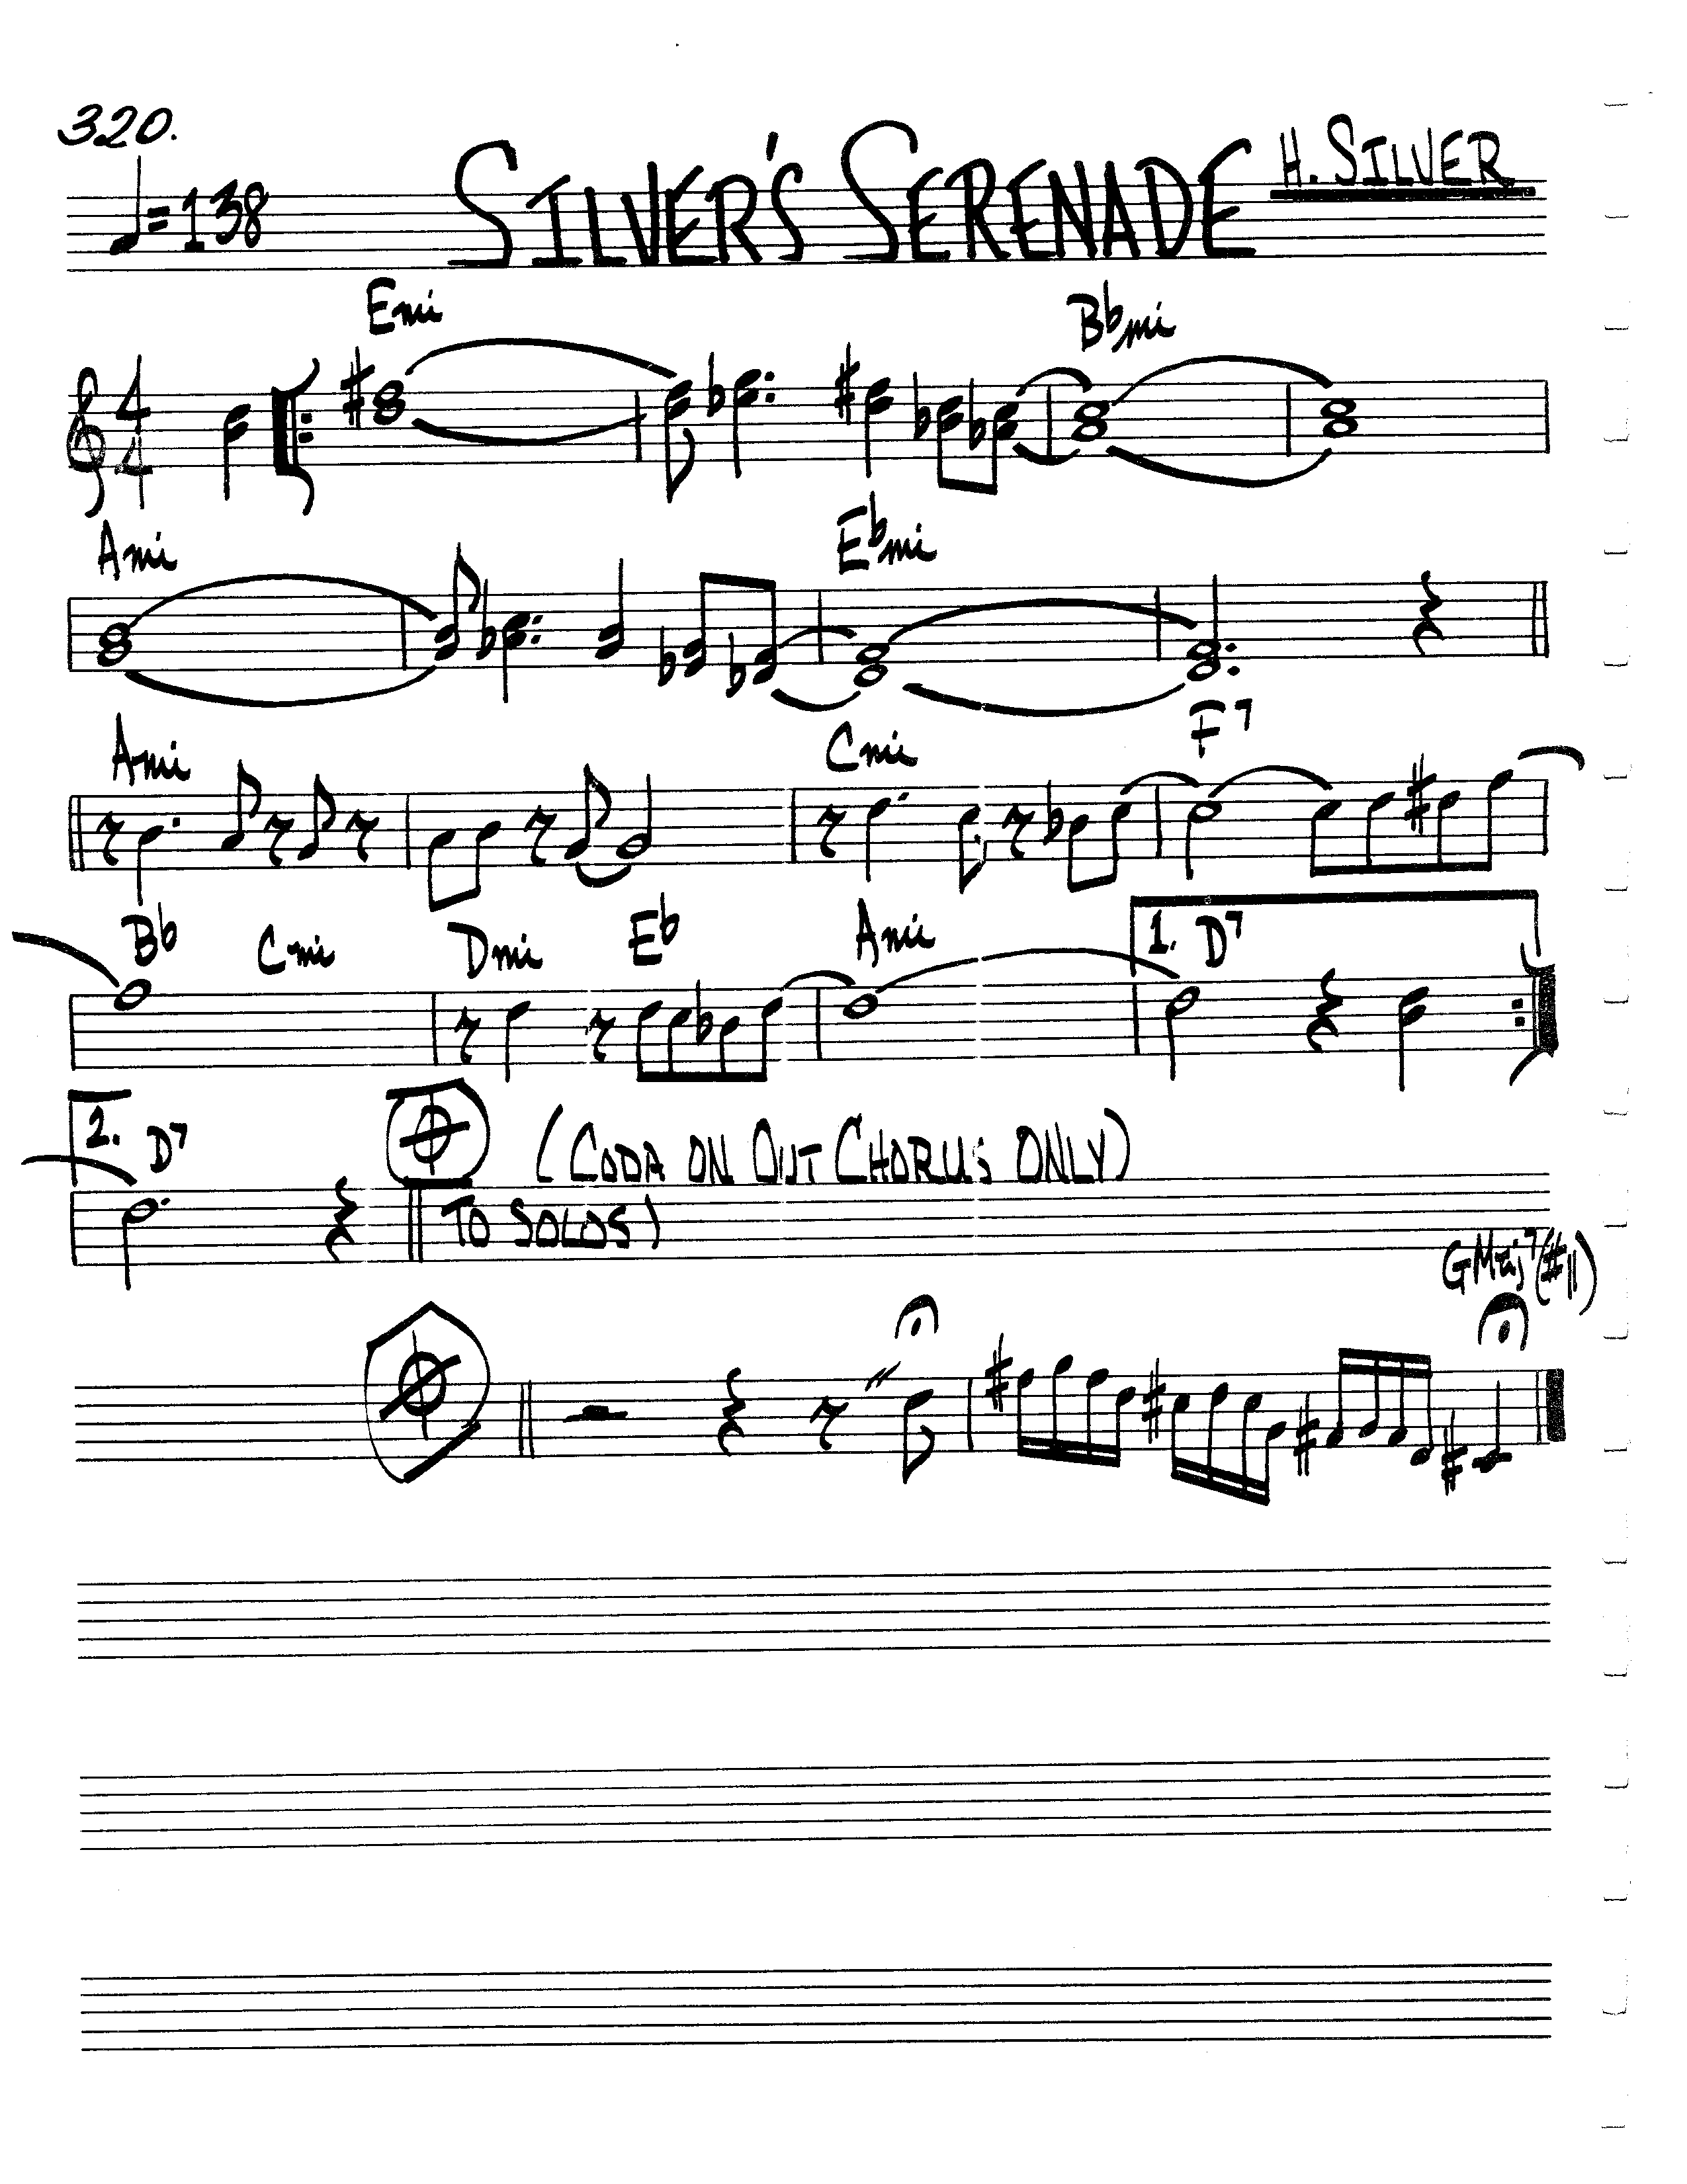 320.
♩= 138 SILVER'S SERENADE H. SILVER
Emi B♭mi
4
4
Ami E♭mi
Ami Cmi F7
B♭ Cmi Dmi E♭ Ami 1. D7
2. D7 (CODA ON OUT CHORUS ONLY)
TO SOLOS)
GMaj7(#11)